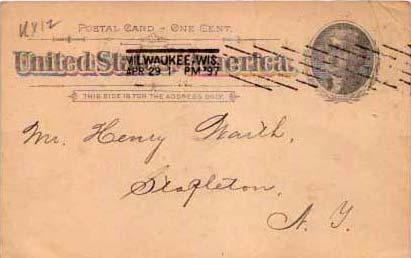 UX12
POSTAL CARD – ONE CENT.
United States of America.
MILWAUKEE, WIS.
APR 29 1 PM '97
THIS SIDE IS FOR THE ADDRESS ONLY.
Mr. Henry Warth,
Stapleton,
N. Y.